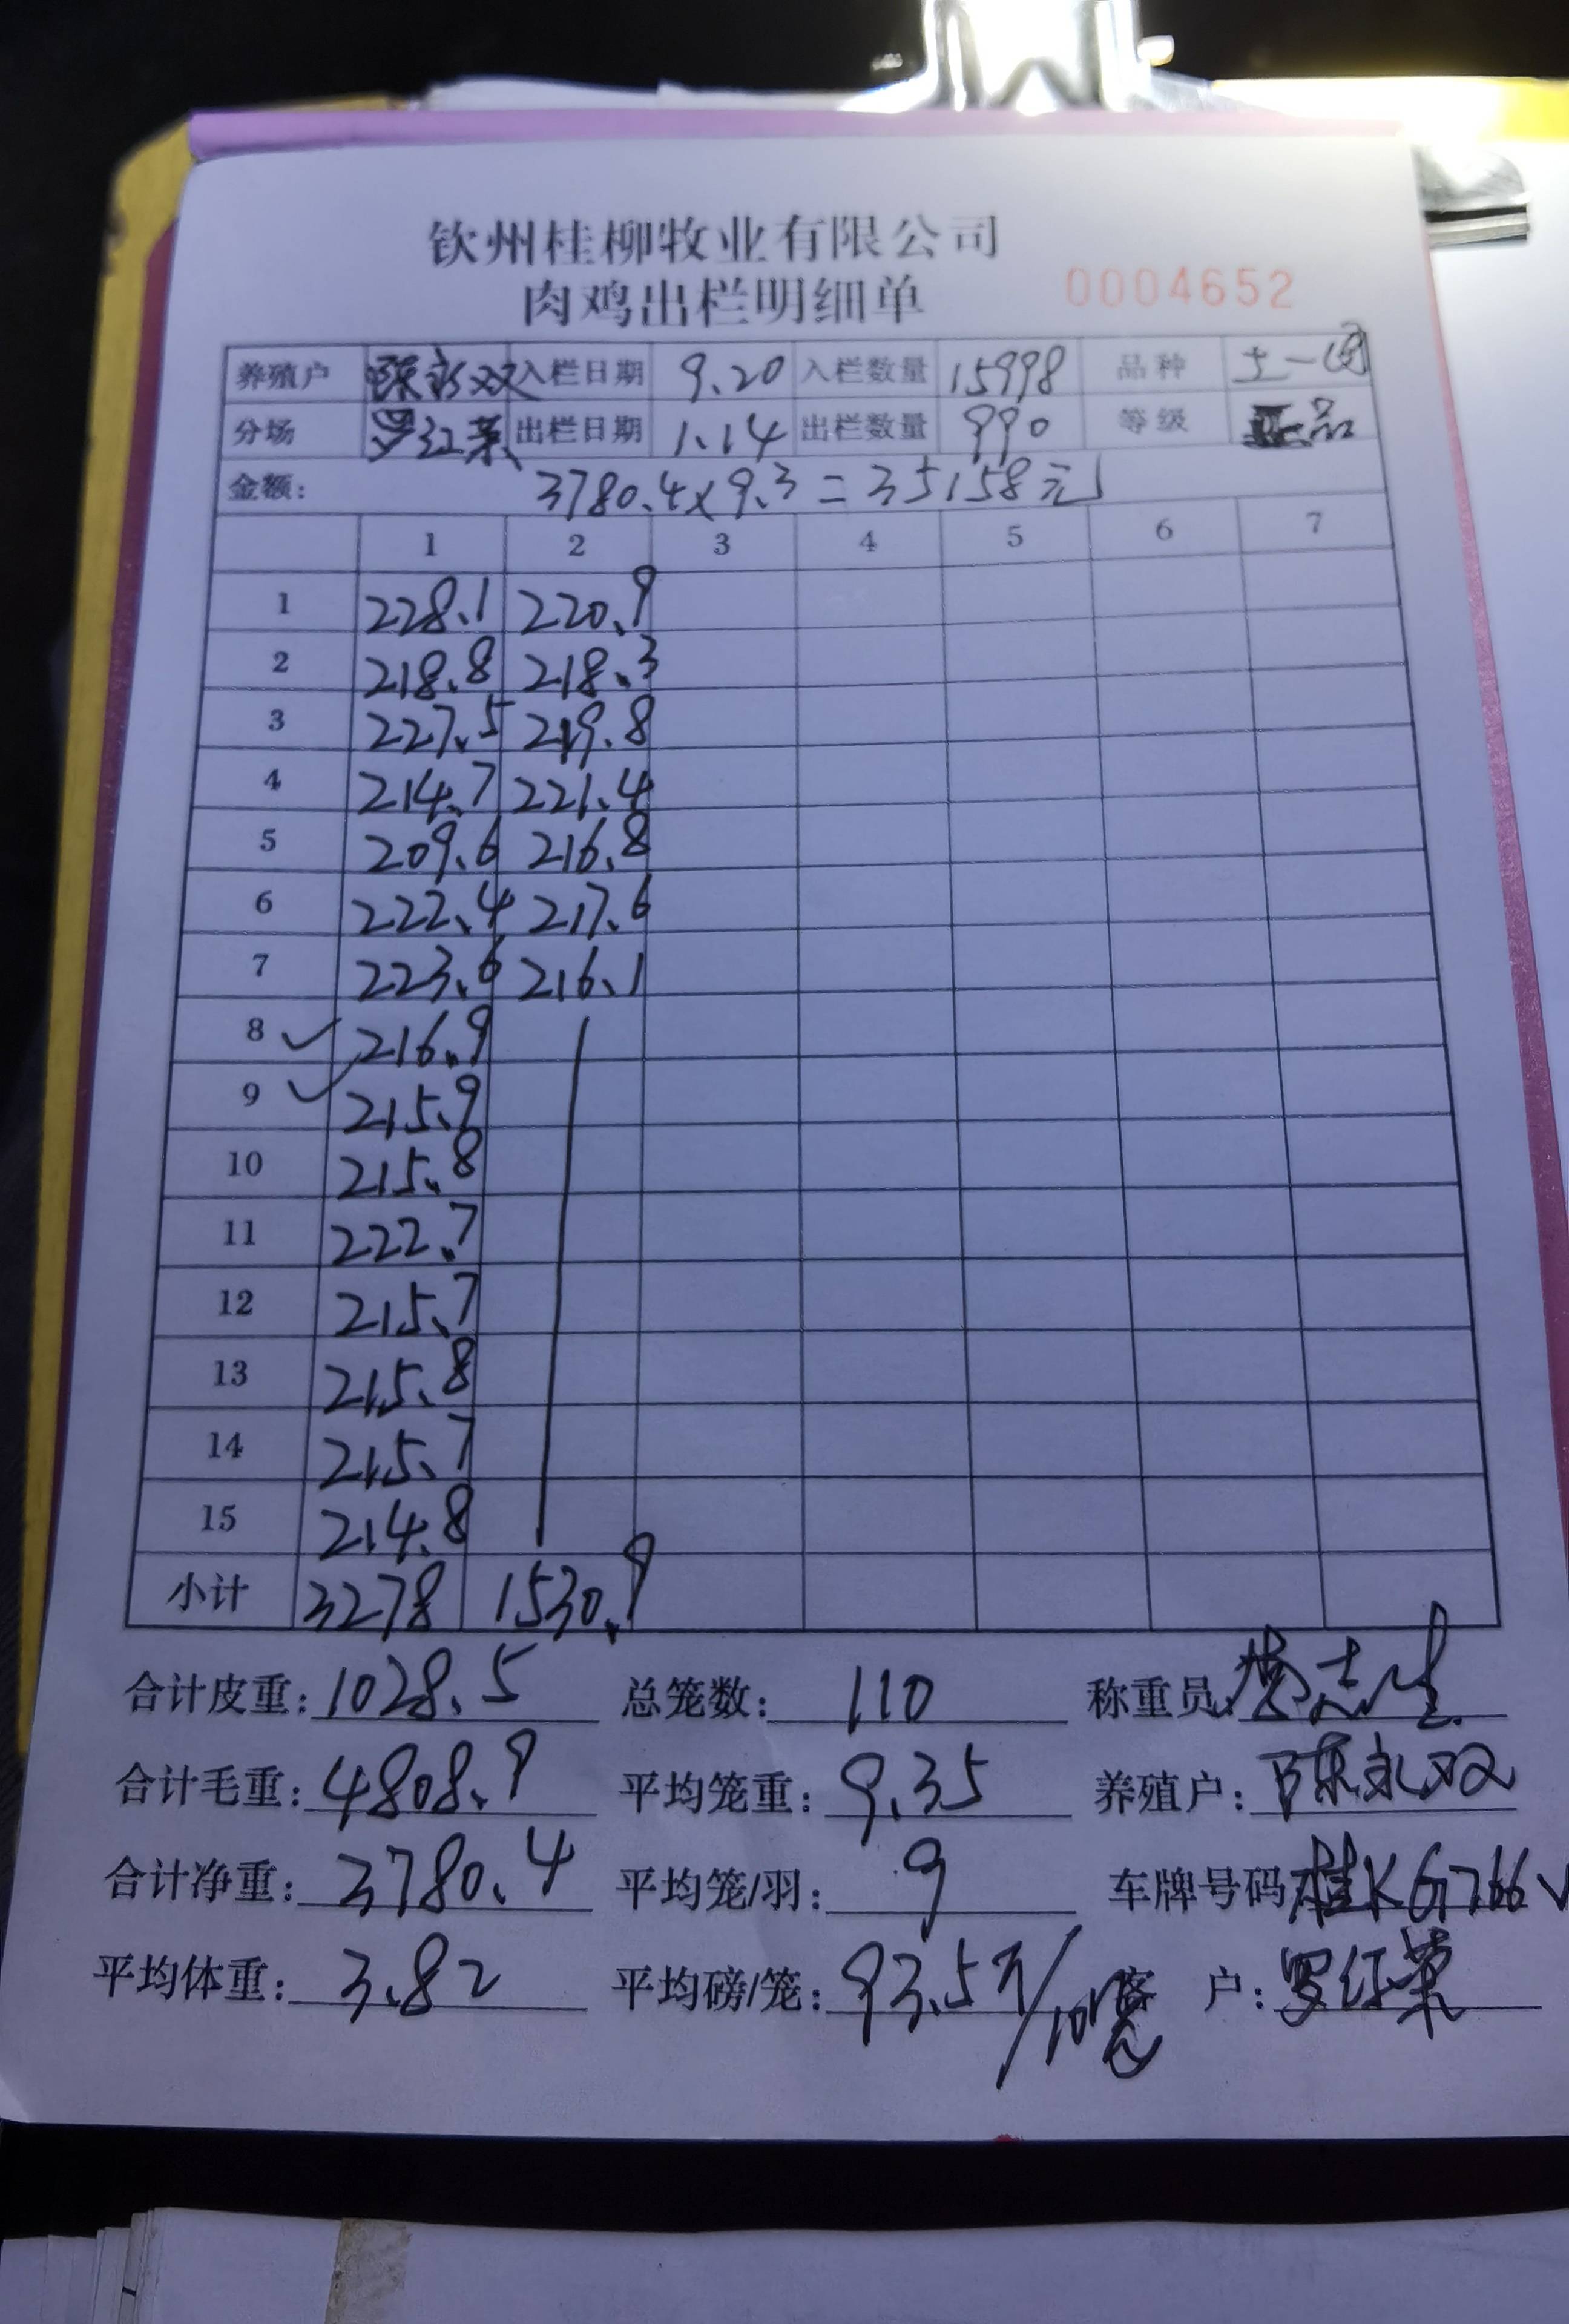 钦州桂柳牧业有限公司
肉鸡出栏明细单 0004652
养殖户 陈永双 入栏日期 9.20 入栏数量 15998 品种 土一
分场 罗红荣 出栏日期 1.14 出栏数量 990 等级 品
金额: 3780.4×9.3=35158元
1 2 3 4 5 6 7
1 228.1 220.9
2 218.8 218.3
3 227.5 219.8
4 214.7 221.4
5 209.6 216.8
6 222.4 217.6
7 223.6 216.1
8 ✓ 216.9
9 ✓ 215.9
10 215.8
11 222.7
12 215.7
13 215.8
14 215.7
15 214.8
小计 3278 1530.9
合计皮重: 1028.5 总笼数: 110 称重员:
合计毛重: 4808.9 平均笼重: 9.35 养殖户: 陈永双
合计净重: 3780.4 平均笼/羽: 9 车牌号码 桂KG766V
平均体重: 3.82 平均磅/笼: 93.5 /10 客户: 罗红荣